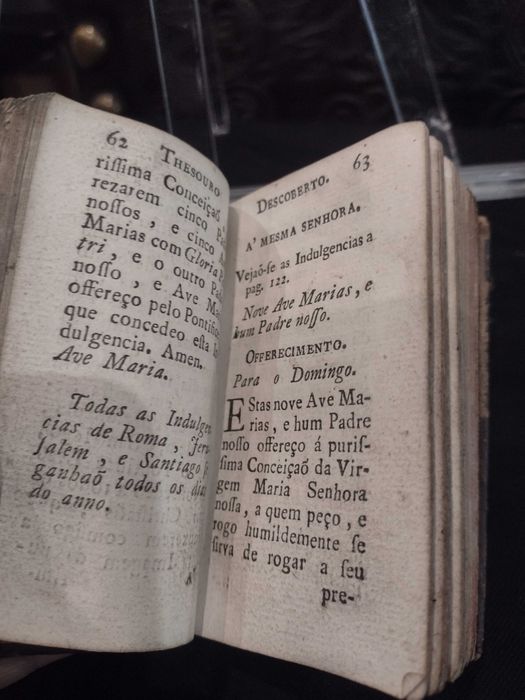 62 THESOURO
rissima Conceiçaõ,
rezarem cinco
nossos, e cinco
Marias com Gloria
tri, e o outro
nosso, e Ave
offereço pelo
que concedeo esta
dulgencia. Amen.
Ave Maria.
Todas as
cias de Roma,
salem, e Santiago se
ganhaõ todos os dias
do anno.
DESCOBERTO. 63
A' MESMA SENHORA.
Vejaõ-se as Indulgencias a
pag. 122.
Nove Ave Marias, e
hum Padre nosso.
OFFERECIMENTO.
Para o Domingo.
EStas nove Ave Ma-
rias, e hum Padre
nosso offereço á puris-
sima Conceiçaõ da Vir-
gem Maria Senhora
nossa, a quem peço, e
rogo humildemente se
sirva de rogar a seu
pre-